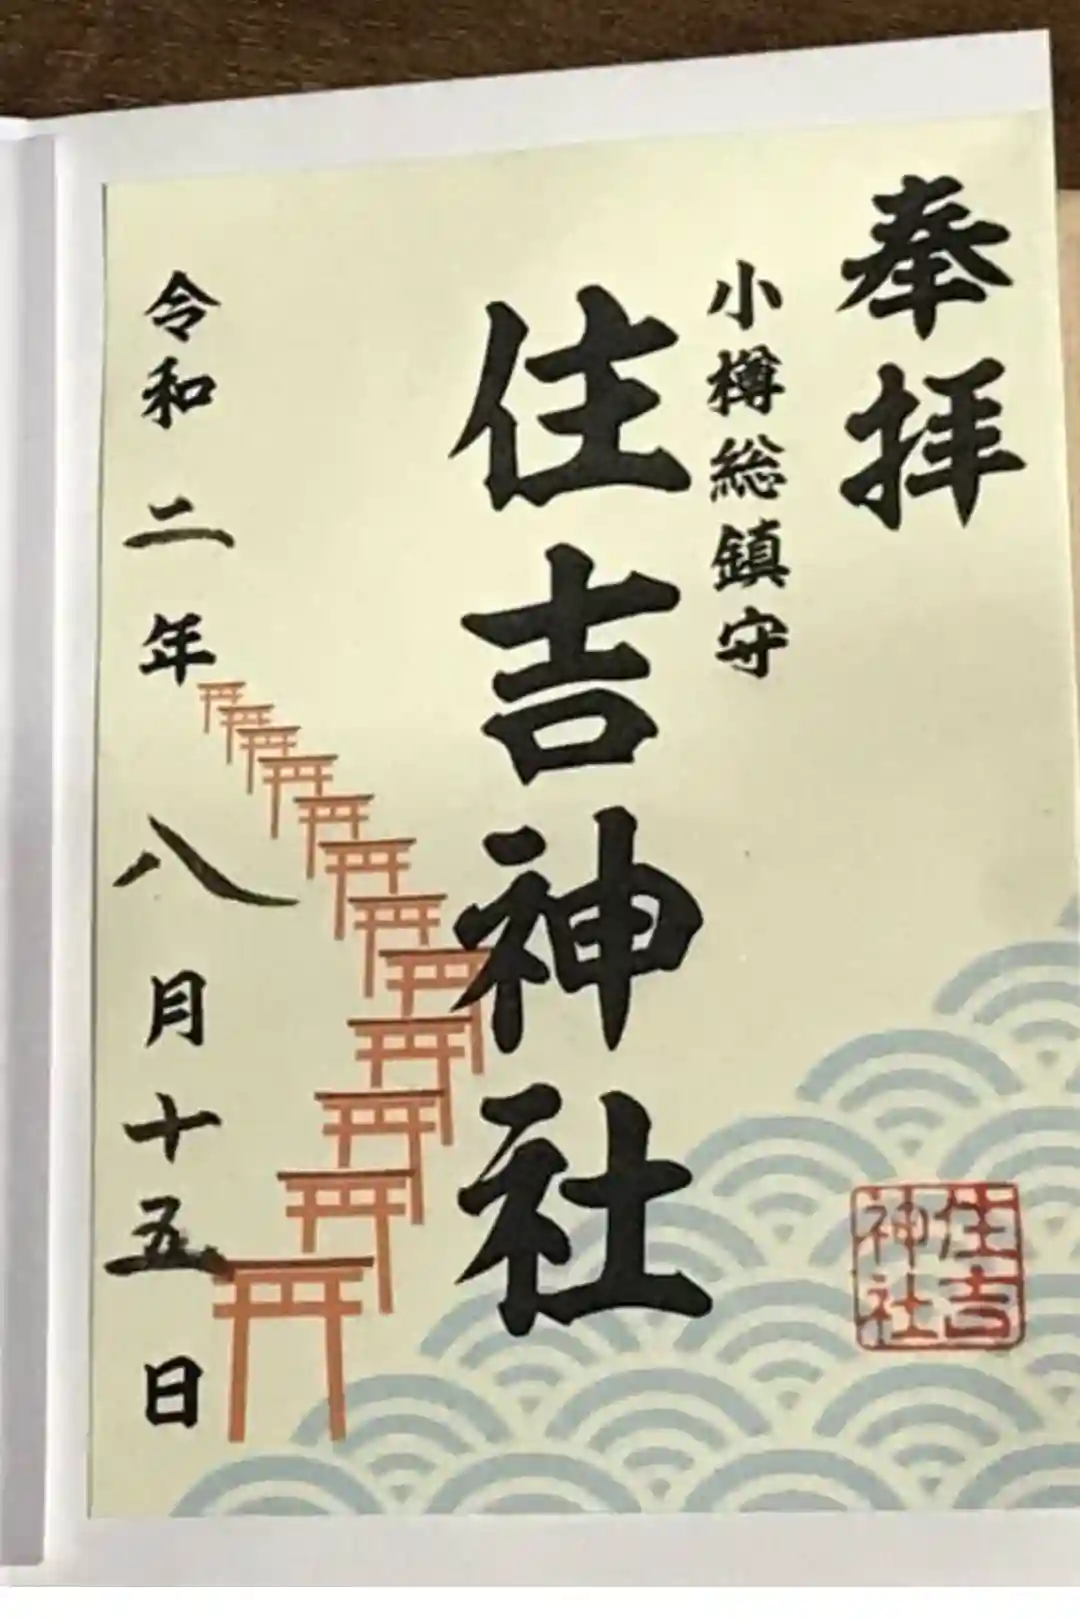 奉拝
小樽総鎮守
住吉神社
令和二年八月十五日
住吉
神社